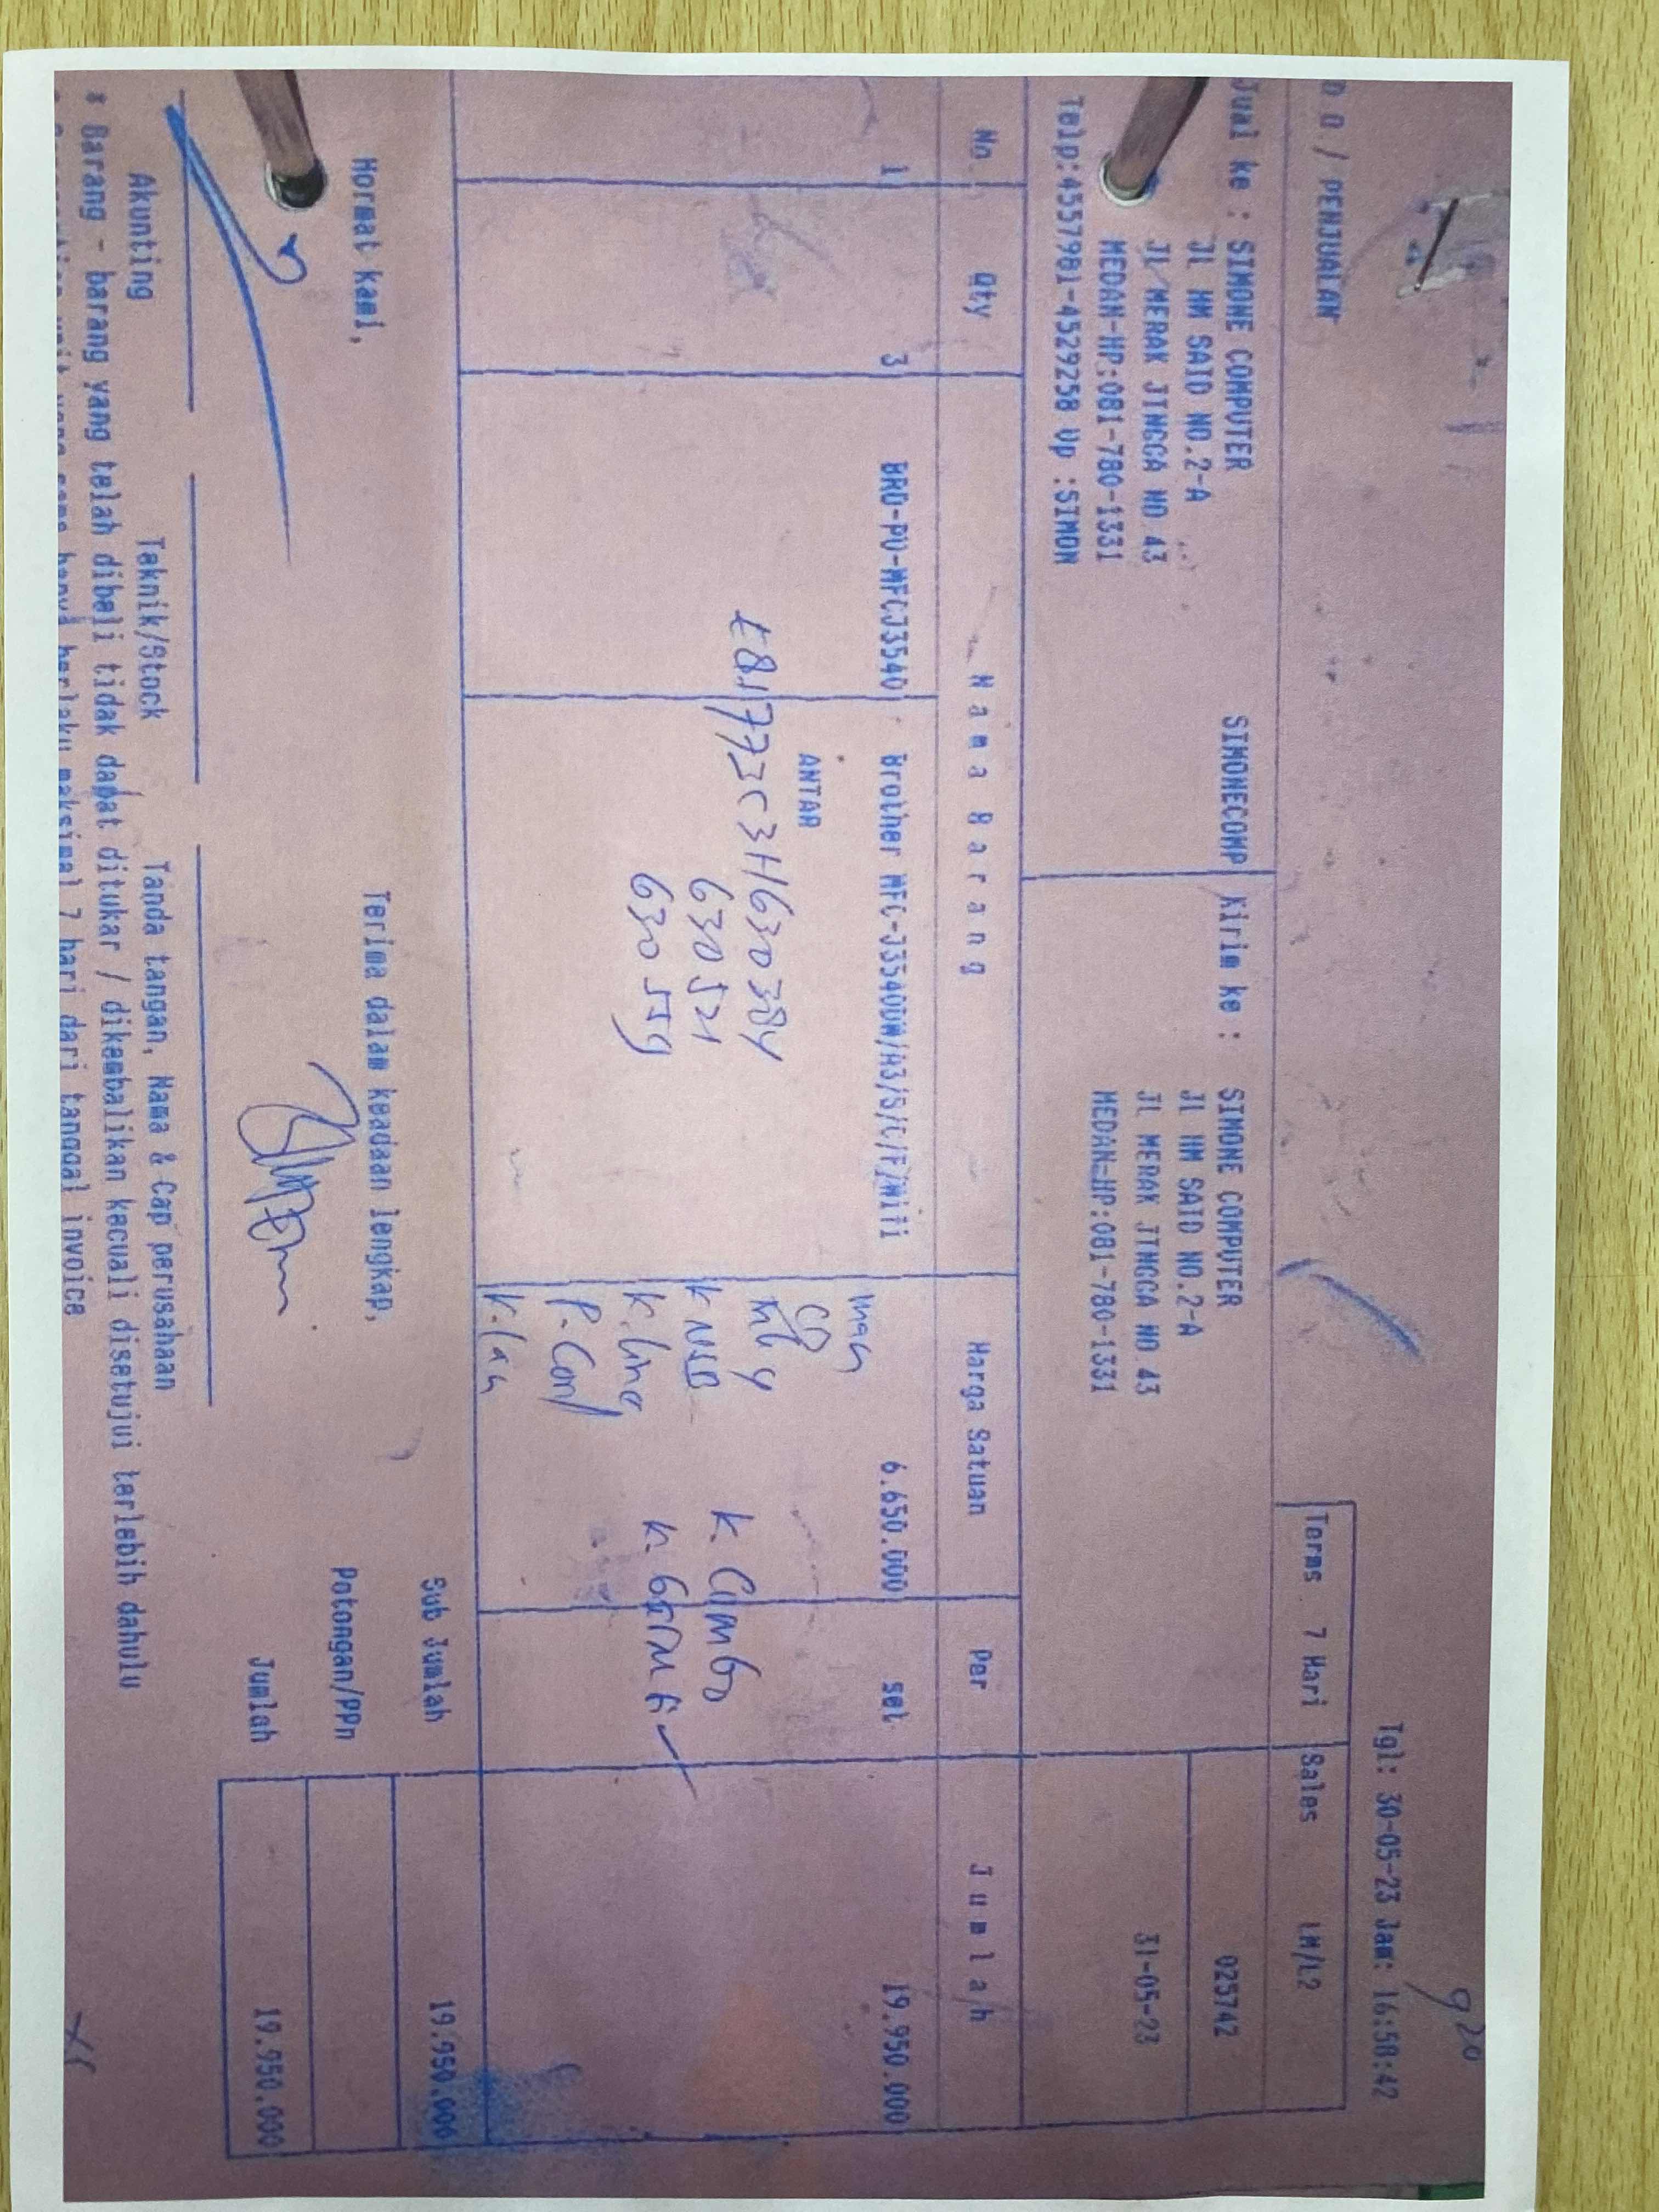 D O / PENJUALAN
Tgl: 30-05-23 Jam: 16:58:42
Terms 7 Hari Sales LM/L2
Jual ke : SIMONE COMPUTER SIMONECOMP
JL HM SAID NO.2-A
JL MERAK JINGGA NO 43
MEDAN-HP:081-780-1331
Telp:4557981-4529258 Up :SIMON
Kirim ke : SIMONE COMPUTER
JL HM SAID NO.2-A
JL MERAK JINGGA NO 43
MEDAN-HP:081-780-1331
025742
31-05-23
No Qty Nama Barang Harga Satuan Per Jumlah
1 3 BRO-PO-MFCJ3540 Brother MFC-J3540DW/A3/S/C/F/Wifi 6.650.000 set 19.950.000
ANTAR
630521
K. line
Sub Jumlah 19.950.000
Potongan/PPn
Jumlah 19.950.000
Hormat kami,
Terima dalam keadaan lengkap,
Akunting Teknik/Stock Tanda tangan, Nama & Cap perusahaan
* Barang - barang yang telah dibeli tidak dapat ditukar / dikembalikan kecuali disetujui terlebih dahulu
hanya berlaku maksimal 7 hari dari tanggal invoice